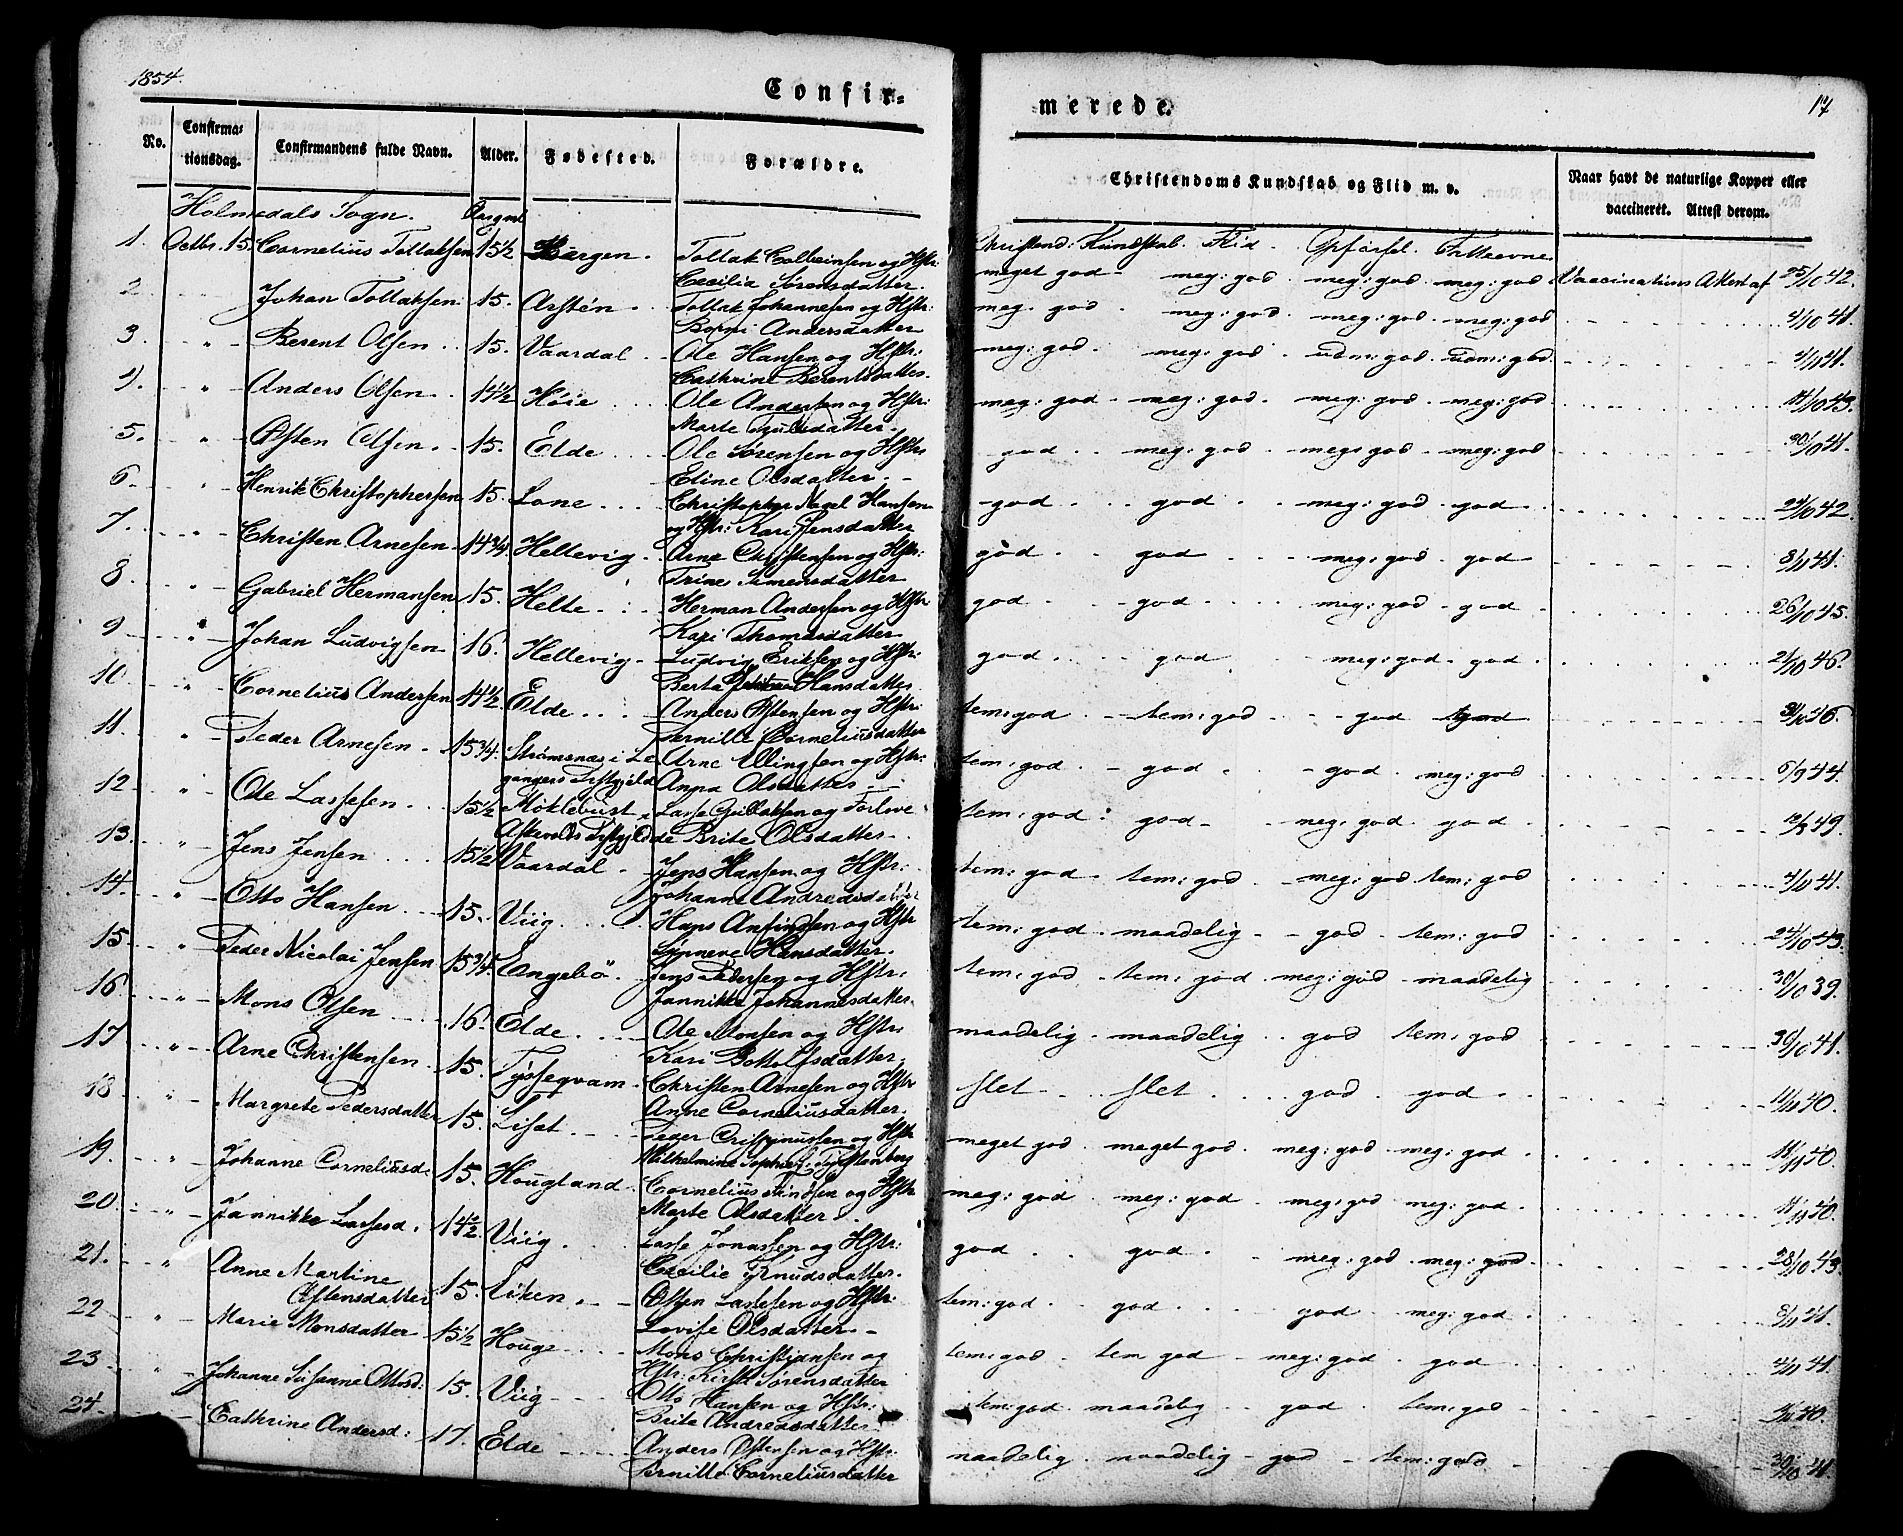 1854.
Confir=
merede.
17
No.
Confirma-
tionsdag.
Confirmandens fulde Navn.
Alder.
Fødested.
Forældre.
Christendoms Kundskab og Flid m. v.
Naar havt de naturlige Kopper eller
vaccineret. Attest derom.
Holmedals Sogn.
Christend: Kundskab. Flid. Opførsel. Fatteevne
1. Octbr. 15. Cornelius Tollaksen 15½ Bergen. Tollak Colbeinsen og Hstr: meget god - meg: god. meg: god. meg: god. Vaccinations Attest af 25/10 42.
Cecilia Sørensdatter.
2 Johan Tollaksen. 15. Arstén. Tollak Johannesen og Hstr: meg. god. meg: god. meg: god. meg: god 4/10 41.
Andersdatter
3. " Berent Olsen. 15. Vaardal. Ole Hansen og Hstr: meg: god. meg: god. udm: god. udm: god. 4/11 41.
Cathrine Berentsdatter.
4. " Anders Olsen. 14½ Høie. Ole Andersen og Hstr: meg: god - meg: god. meg: god. meg: god 10 43.
Marte datter.
5. " Østen Olsen. 15. Elde. Ole Sørensen og Hstr god. meg: god. meg: god. meg: god 30/10 41.
Eline Olsdatter.
6. Henrik Christophersen 15. Lone. Christopher Nagel Hansen god. god. meg: god. god. 24/10 42.
og Hstr: Kari Jensdatter
7. " Christen Arnesen 14¾ Hellevig. Arne Christensen og Hstr: god. god. meg: god. god 8/11 41.
Trine Simensdatter
8 " Gabriel Hermansen 15. Helle. Herman Andersen og Hstr god. god. meg: god. god 26/10 45.
Kari Thomasdatter
9 " Johan Ludvigsen 16. Hellevig. Ludvig Eriksen og Hstr: god. god meg: god. god. 21/10 46.
Berta Hansdatter
10. " Cornelius Andersen 14½ Elde. Anders Østensen og Hstr: tem: god. tem: god. god god 46.
Pernille Corneliusdatter
11. " Peder Arnesen. 15¾. Strømsnæs i Le Arne Ellingsen og Hstr: tem: god. god. god. meg: god 6/9 44.
gangers Prstgjeld Anna Olsdatter
12 " Ole Lassesen. 15½ Møklebust Lasse Gullaksen og Forlove tem: god. god. meg: god. god. 49.
Askevolds Prstgjeld de Brite Olsdatter.
13. " Jens Jensen. 15½ Vaardal. Jens Hansen og Hstr: tem: god. tem: god. meg: god. tem: god 4/10 41.
Johanne Andreasdatter
14. " Otto Hansen. 15. Viig. Hans Anfindsen og Hstr tem: god. maadelig. god. tem: god 24/10 43.
Synneve Hansdatter.
15. " Peder Nicolai Jensen 15¾ Engebö. Jens Pedersen og Hstr: tem: god. tem: god. meg: god. maadelig 30/10 39.
Jannikke Johannesdatter.
16. " Mons Olsen 16. Elde. Ole Monsen og Hstr: maadelig. maadelig. god. tem: god 30/10 41.
Kari Botolfsdatter.
17 " Arne Christensen. 15. Tysseqvam. Christen Arnesen og Hstr slet. slet. god. god. 11/10 40.
Anne Corneliusdatter.
18 " Margrete Pedersdatter 15. Liset. Peder Crispinussen og Hstr meget god. meget god. meg: god. meg: god. 11/11 40.
Wilhelmine Sophie
19. " Johanne Corneliusd. 15. Hougland Cornelius og Hstr meg: god. meg: god. meg: god meg: god. 11/11 40.
Marte Olsdatter.
20. " Jannikke Lassesd. 14½. Viig. Lasse Jonassen og Hstr: god. god. meg: god. meg: god. 28/10 43.
Cecilie Knudsdatter.
21. " Anne Martine 15. Liken. Østen Lassesen og Hstr: tem: god. god. god. meg: god. 8/11 41.
Østensdatter Lovise Olsdatter.
22 " Marie Monsdatter 15½ Houge Mons Christiansen og tem: god. tem god - meg: god. god. 4/11 41.
Hstr: Kirsti Sørensdatter
23 " Johanne Susanne Ottosd: 15. Viig Otto Hansen og Hstr: tem: god. maadelig. god. tem: god 40.
Brita Andreasdatter.
24. Cathrine Andersd: 17. Elde Anders Østensen og Hstr: maadelig. maadelig. god. tem: god 30/10 41.
Pernille Corneliusdatter